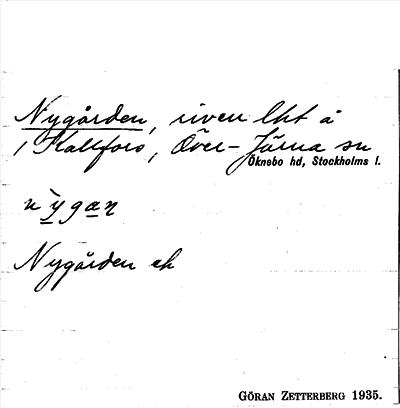 Nygården, riven lht å
1 Kallfors, Över-Järna sn
Öknebo hd, Stockholms l.
n`ygaŋ
Nygården ek
GÖRAN ZETTERBERG 1935.